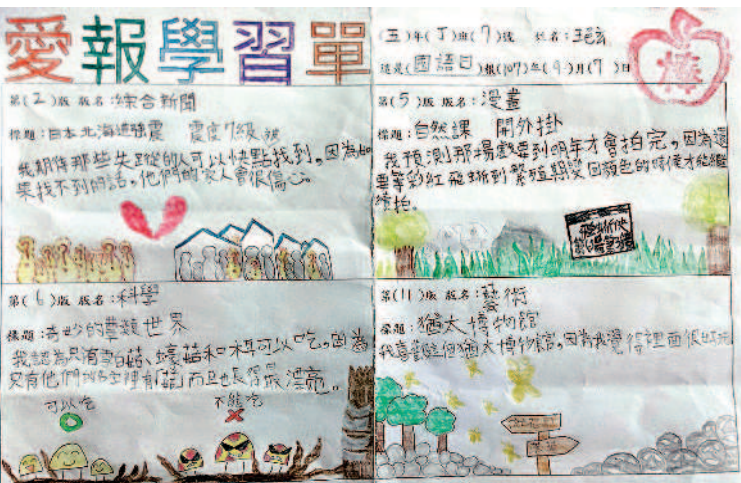 愛報學習單
(五)年(丁)班(7)號 姓名:
這是(國語日)報(107)年(9)月(7)日
棒
第(2)版 版名:綜合新聞
標題:日本北海道強震 震度7級
我期待那些失蹤的人可以快點找到。因為如
果找不到的話,他們的家人會很傷心。
第(5)版 版名:漫畫
標題:自然課 開外掛
我預測那場戲要到明年才會拍完,因為還
要等彩虹飛蜥到繁殖期變回顏色的時候才能繼
續拍。
第(6)版 版名:科學
標題:奇妙的蕈類世界
我認為只有雪白菇、蠔菇和木耳可以吃。因為
只有他們的名字裡有「菇」而且也長得最漂亮。
可以吃
不能吃
第(11)版 版名:藝術
標題:猶太博物館
我喜歡這個猶太博物館,因為我覺得裡面很好玩